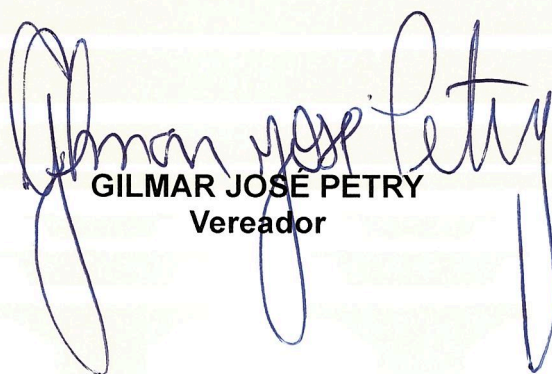 Gilmar José Petry
GILMAR JOSÉ PETRY
Vereador